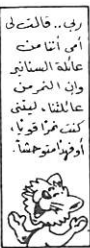 ربي.. قالت لي
أمي أننا من
عائلة السنانير
وإن النمر من
عائلتنا، ليتني
كنت نمرًا قويًا،
أو فهدًا متوحشًا.